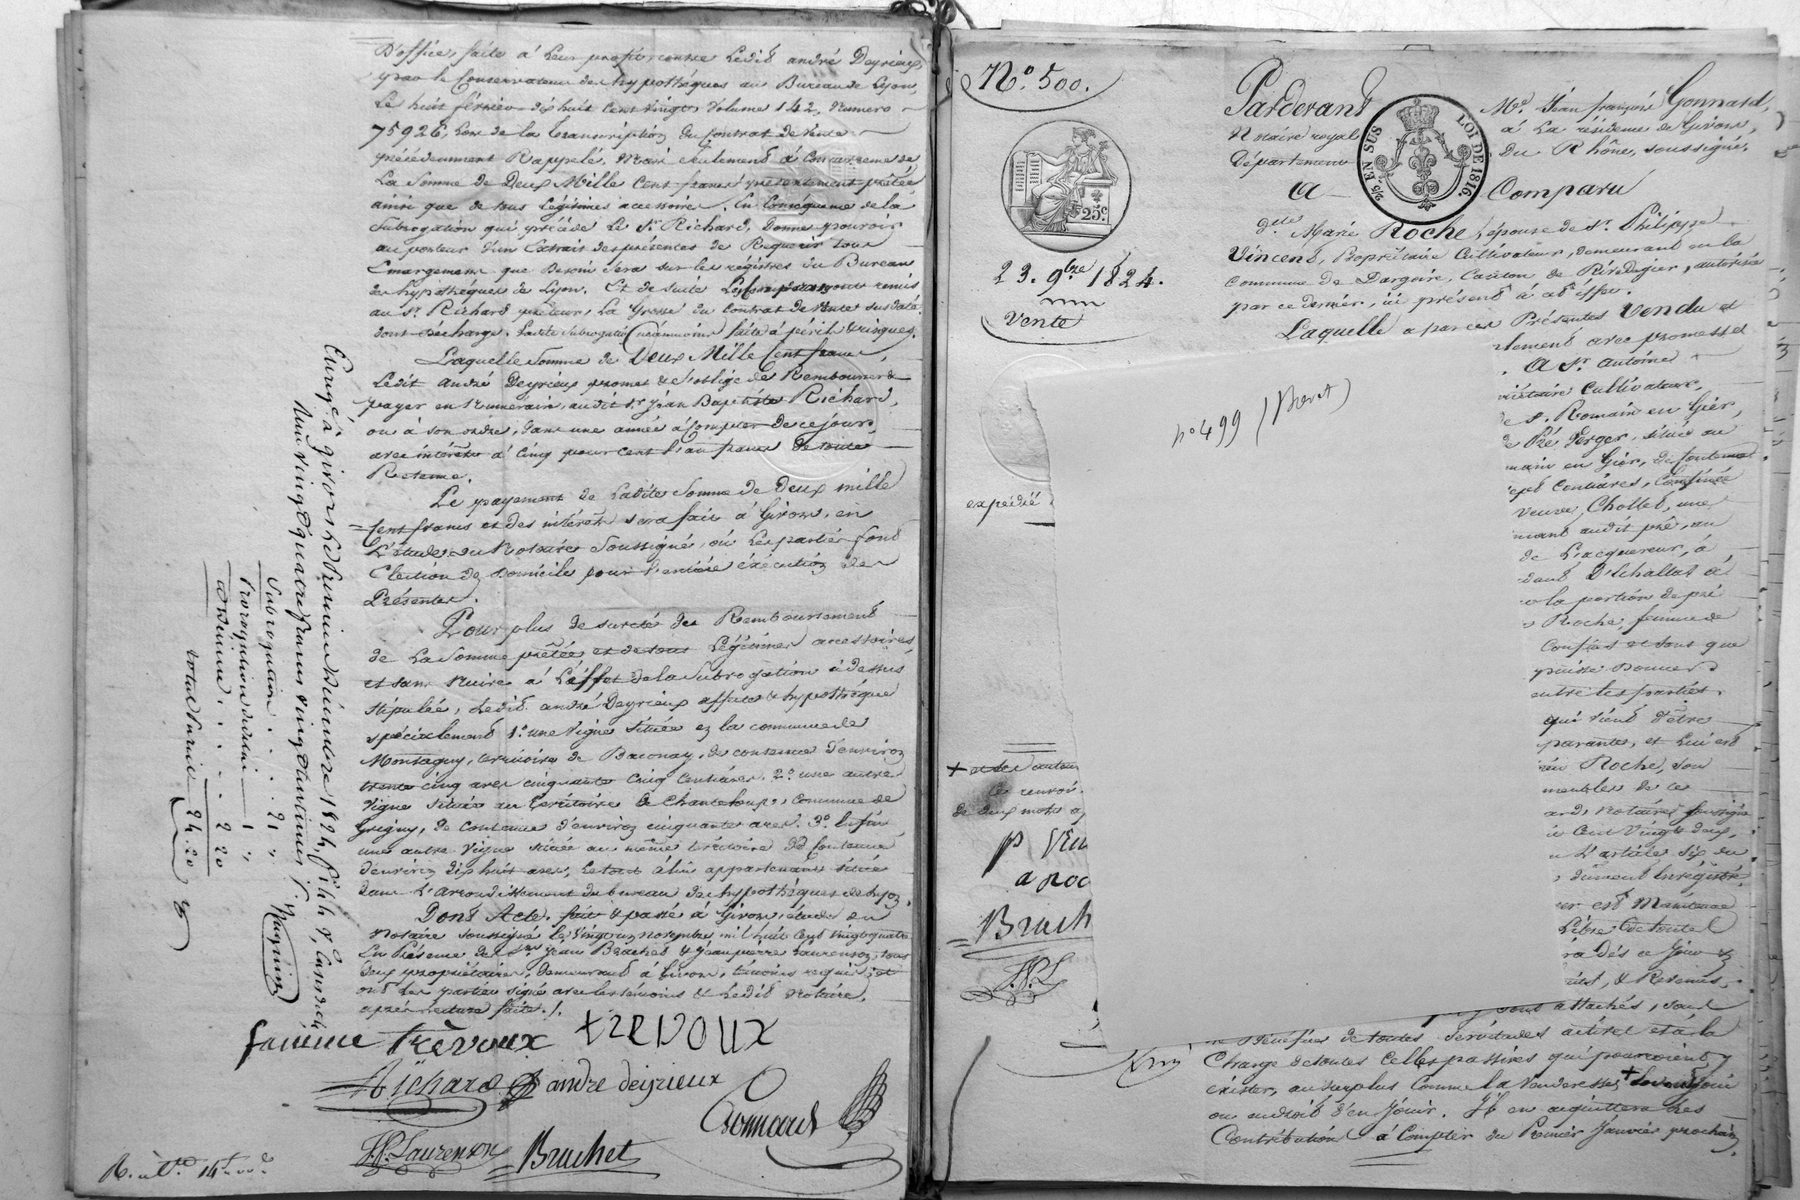 D'office, faite à leur profit contre Ledit andré Deyrieux
par le Conservateur des hypothèques au Bureau de Lyon,
Le huit février dix huit cent vingt, Volume 142, Numero
75926, Lors de la transcription du Contrat de vente
précédemment Rappelé, Mais seulement à concurrence de
La Somme de Deux Mille Cent francs présentement prêtée
ainsi que de tous légitimes accessoires. En Conséquence de la
Subrogation qui précède Le Sr. Richard, Donne pouvoir
au porteur d'un Extrait des présentes de Requérir tous
Emargemens que Besoin sera sur les registres du Bureau
des hypothèques de Lyon. Et de suite Les Comparans ont remis
au Sr. Richard prêteur, la Grosse du Contrat de Vente susdaté
dont décharge. Ladite Subrogation Néanmoins faite à périls & risques.
Laquelle Somme de Deux Mille Cent francs,
Ledit André Deyrieux promet & s'oblige de Rembourser &
payer en Numéraire, audit Sr. Jean Baptiste Richard,
ou à son ordre, dans une année à Compter de ce jour,
avec intérêts à Cinq pour cent l'an francs de toute
Retenue.
Le payement de Ladite Somme de Deux mille
Cent francs et des intérêts sera fait à Givors, en
L'étude du Notaire Soussigné, où Les parties font
Election de domicile pour l'entière éxécution des
Présentes.
Pour plus de sureté du Remboursement
de La Somme prêtée et de tous Légitimes accessoires
et sans Nuire à L'éffet de la Subrogation ci dessus
stipulée, Ledit andré Deyrieux affecte & hypothèque
spécialement 1o. une Vigne située en la commune de
Montagny, territoire de Baconay, de contenue d'environ
trente cinq ares cinquante Cinq Centiares. 2o. une autre
Vigne située au territoire de Chanteloup, commune de
Grigny, de contenue d'environ cinquante ares. 3o. Enfin
une autre Vigne située au même territoire de Contenue
d'environ dix huit ares, Le tout à lui appartenant situé
dans L'Arrondissement du bureau des hypothèques de Lyon.
Dont Acte. fait & passé à Givors, étude du
Notaire soussigné Le Vingt un novembre mil huit Cent vingt quatre
En Présence de Srs. Jean Brachet & Jean pierre Laurenson, tous
deux propriétaires, demeurant à Givors, témoins requis; et
ont les parties signé avec les témoins & Ledit Notaire,
après lecture faite./.
femme Trevoux TREVOUX
Richard andre deyrieux
Gonnard
JP. Laurenson Bruchet
Enregé. à givors Le premier Décembre 1824, fo.
Reçu vingt quatre francs vingt centimes
Subrogation . . 21 "
Prorogation 1 "
Décime . . . . 2 20
total 24.20
No. 500.
25c.
2/5 EN SUS
LOI DE 1816.
23. 9bre 1824.
Vente
expédié
Pardevant Me. Jean françois Gonnard,
Notaire royal à La résidence de Givors,
Département du Rhône, soussigné,
A Comparu
de. Marie Roche, épouse de Sr. Philippe
Vincent, Propriétaire Cultivateur, demeurant en la
commune de Dargoire, Canton de Rive de gier, autorisée
par ce dernier, ici présent à cet effet.
Laquelle a par ces Présentes Vendu et
lement avec promesse
A Sr. antoine
riétaire Cultivateur,
de St. Romain en Gier,
de Pré Verger, situé au
main en Gier, de Contenue
sept Centiares, Confinée
veuve Chollet, une
nant audit pré, au
de L'acquereur, à
dant D'Echallas à
la portion de pré
Roche, femme de
Confins et tout que
puisse Donner
entre les parties.
qui vient d'être
parante, et lui est
Roche, son
meubles de ce
ard, notaire soussigné
Cent Vingt deux,
L'article six du
dument Enregistré.
er est Maintenue
Libre de toute
ra dès ce Jour
nés, & Retenus,
sont attachés, sous
Bénéfices de toutes servitudes actives et à la
Charge de toutes Celles passives qui pourroient y
exister, au surplus Comme la Venderesse +
ou auroit d'en Jouir. Il en acquittera Les
Contributions à Compter du Premier Janvier prochain.
no 499 (Brevet)
+
Ce renvoi
de deux mots
p VIN
a roc
Bruch
J.P.L